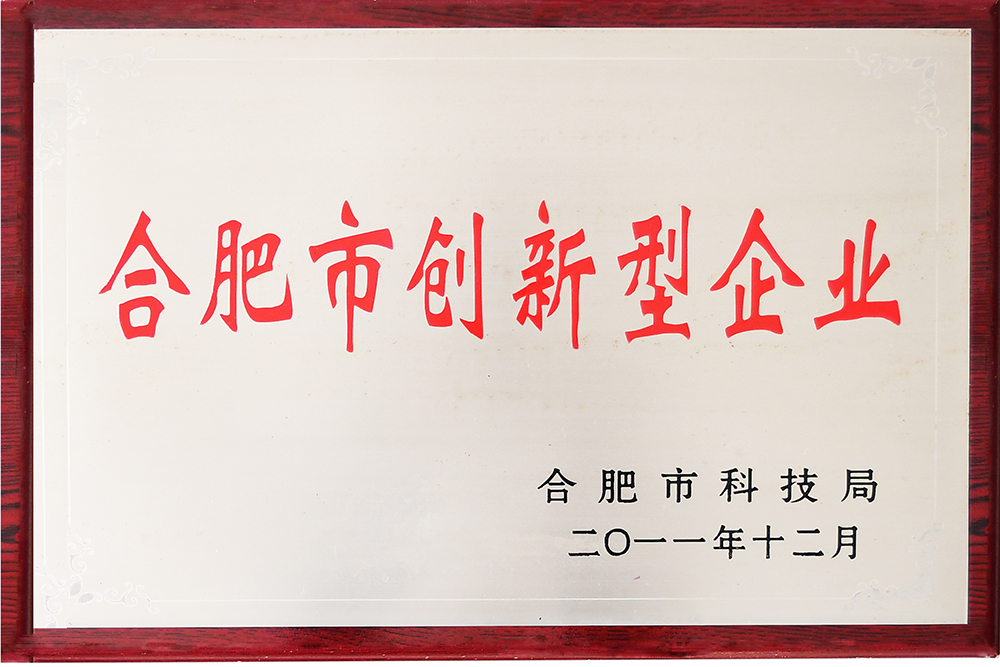 合肥市创新型企业
合肥市科技局
二〇一一年十二月